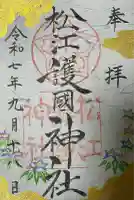 奉拝
松江護國神社
令和七年九月十八日